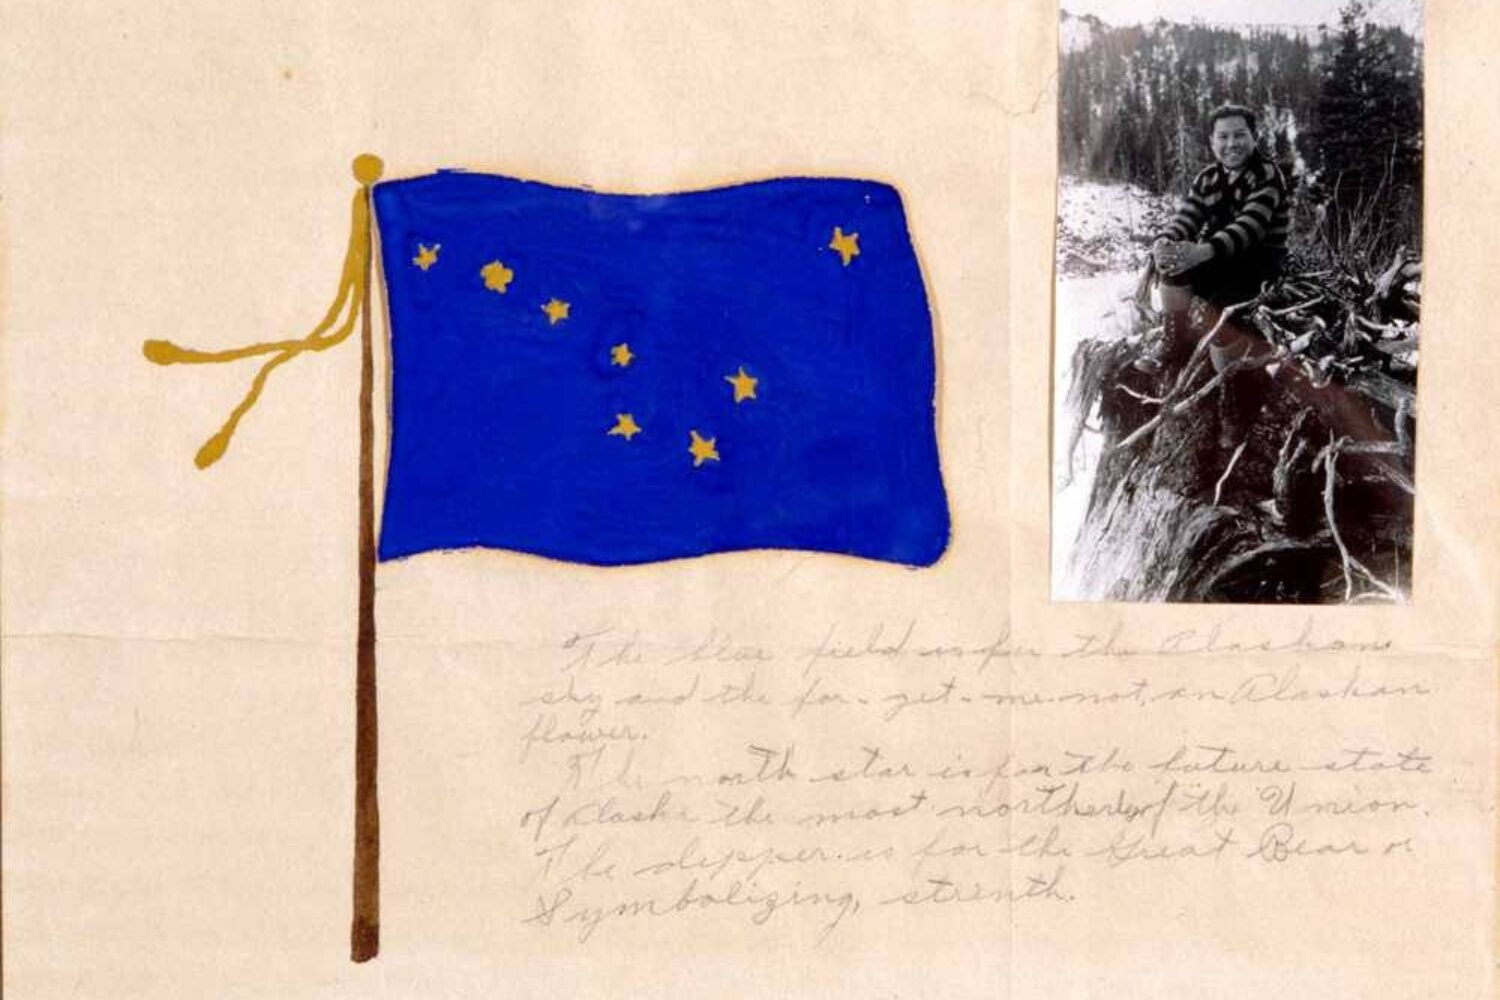 The blue field is for the Alaskan
sky and the for-get-me-not, an Alaskan
flower.
The north star is for the future state
of Alaska the most northerly of the Union.
The dipper is for the Great Bear
Symbolizing, strinth.